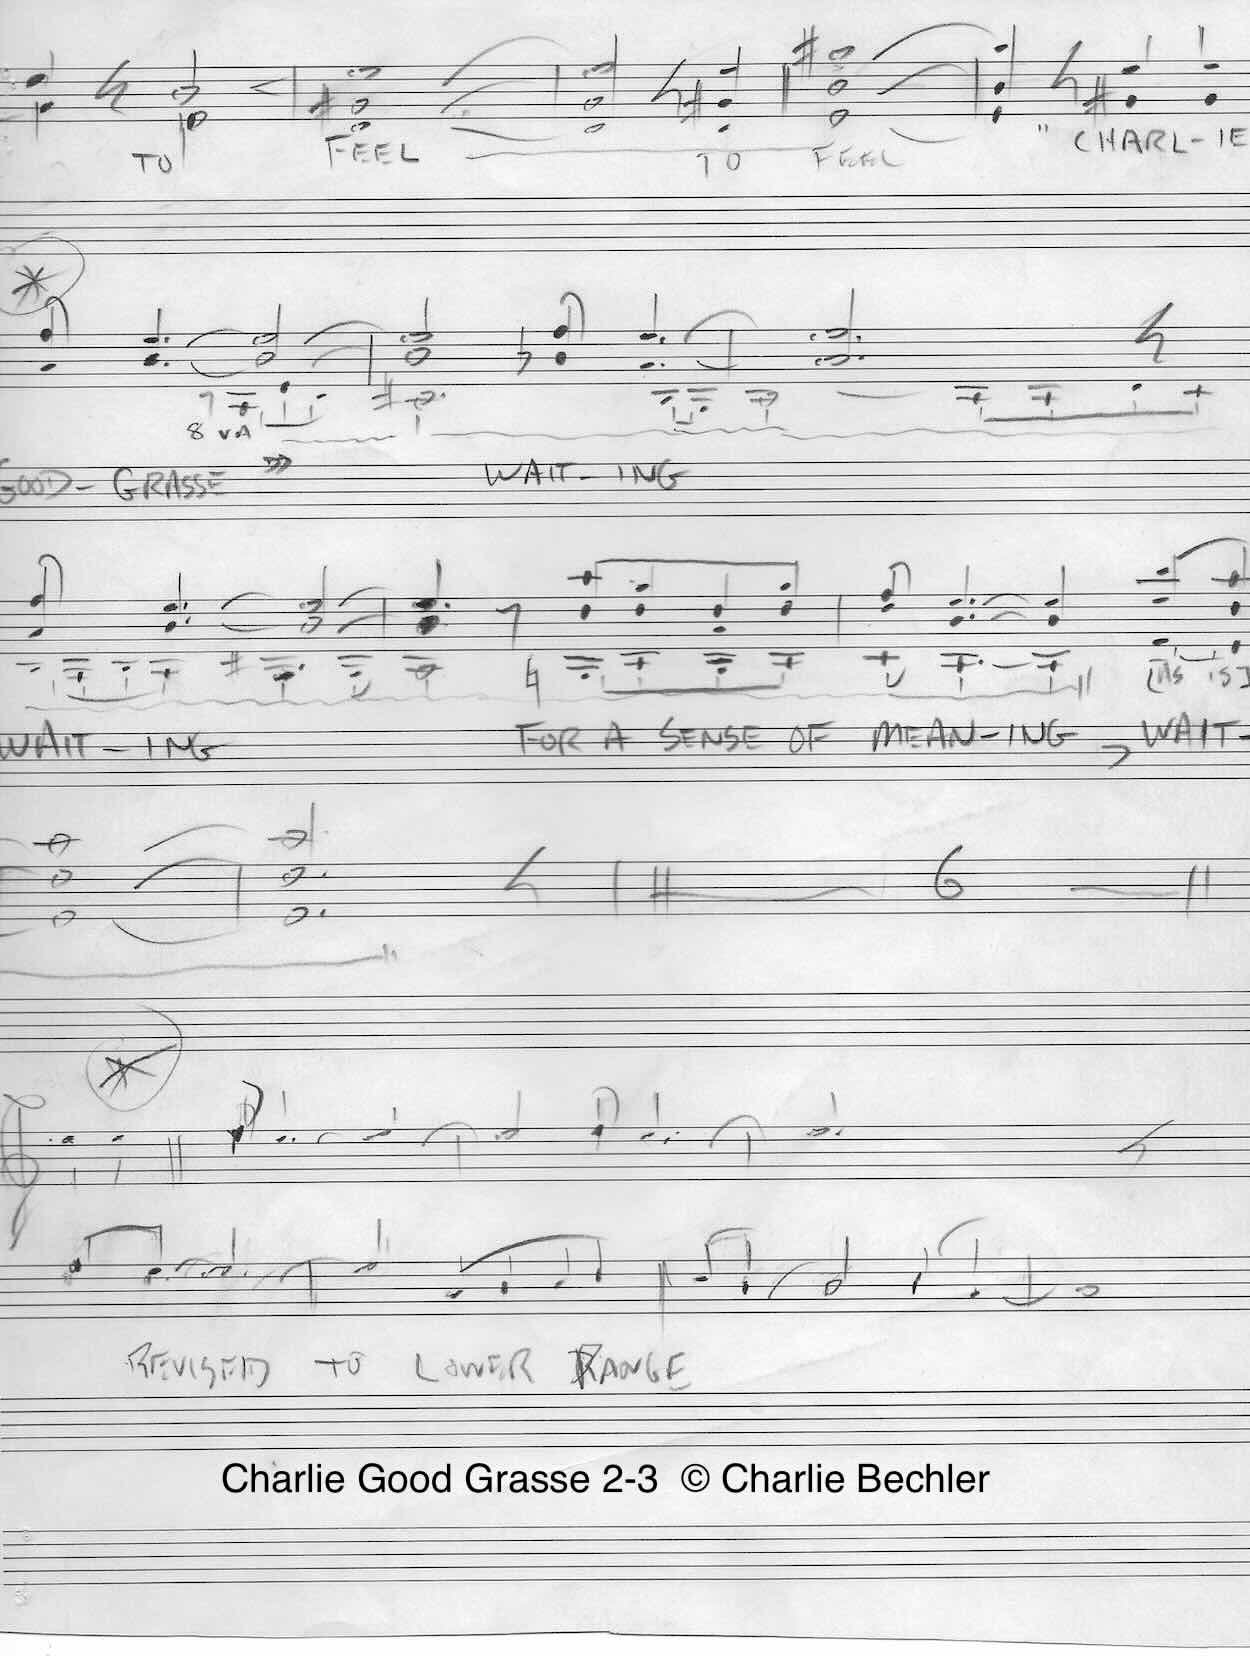 TO FEEL TO FEEL "CHARL-IE
8 VA
GOOD- GRASSE WAIT-ING
WAIT-ING FOR A SENSE OF MEAN-ING WAIT-
[AS IS]
6
REVISED TO LOWER RANGE
Charlie Good Grasse 2-3 © Charlie Bechler